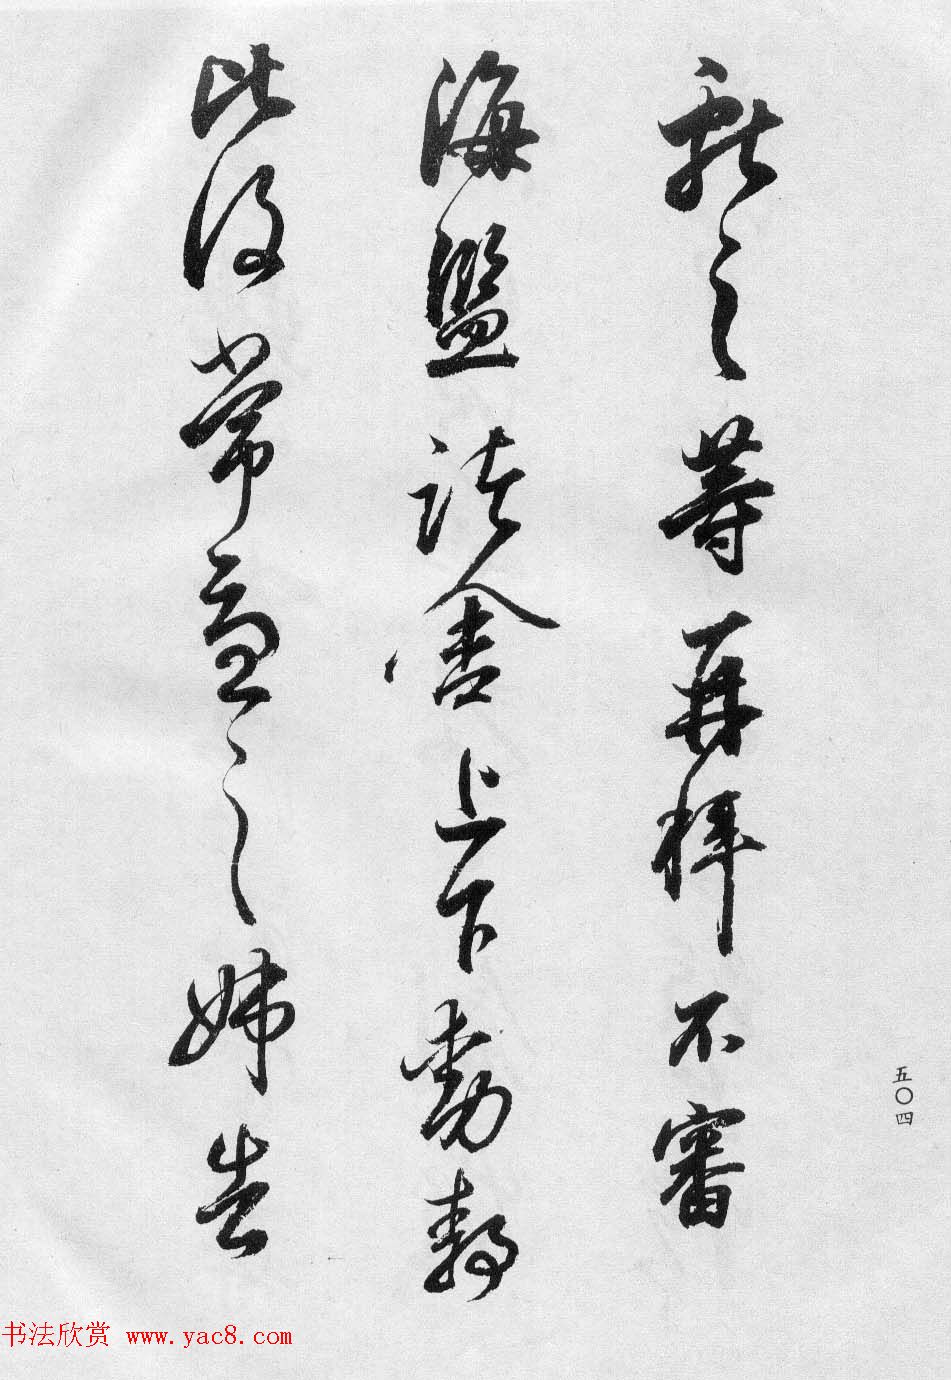 獻之等再拜不審
海鹽諸舍上下動靜
比復常憂之姊告
五〇四
书法欣赏 www.yac8.com